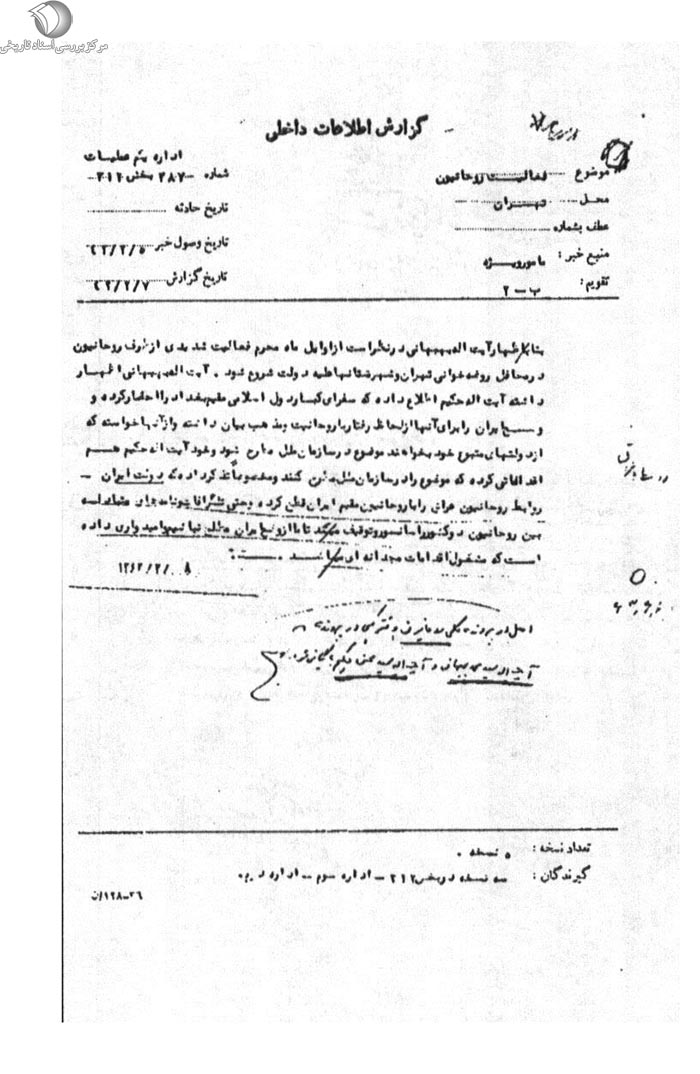 مرکز بررسی اسناد تاریخی
گزارش اطلاعات داخلی
اداره یکم عملیات
شماره ۲۸۷ بخش ۳۱۲
تاریخ حادثه
تاریخ وصول خبر ۴۳/۲/۵
تاریخ گزارش ۴۳/۲/۷
موضوع فعالیت روحانیون
محل تهران
عطف بشماره
منبع خبر: مامور ویژه
تقویم: ب-۲
بنا باظهار آیت اله بهبهانی در نظر است از اوایل ماه محرم فعالیت شدیدی از طرف روحانیون
در محافل روضه خوانی تهران و شهرستانها علیه دولت شروع شود. آیت اله بهبهانی اظهار
داشته آیت اله حکیم اطلاع داده که سفرای کبار دول اسلامی مقیم بغداد را احضار کرده و
وضع ایران را برای آنها از لحاظ رفتار با روحانیت و مذهب بیان داشته و از آنها خواسته که
از دولتهای متبوع خود بخواهند موضوع در سازمان ملل مطرح شود و خود آیت اله حکیم هم
اقداماتی کرده که موضوع را در سازمان ملل مطرح کنند و مخصوصاً تذکر داده که دولت ایران
روابط روحانیون عراق را با روحانیون مقیم ایران قطع کرده و حتی تلگرافات و نامه های متبادله
بین روحانیون دو کشور را سانسور و توقیف میکند تا ما از وضع ایران مطلع نباشیم و امیدواری داده
است که مشغول اقدامات مجدانه ای میباشد
۱۳۴۳/۲/۸
اصل در پرونده
آیت اله سید بهبهانی و آیت اله سید محسن حکیم بایگانی شود
تعداد نسخه: ۵ نسخه.
گیرندگان: سه نسخه در بخش ۳۱۲ - اداره سوم - اداره دوم.
۳۶-۱۲۸/ن